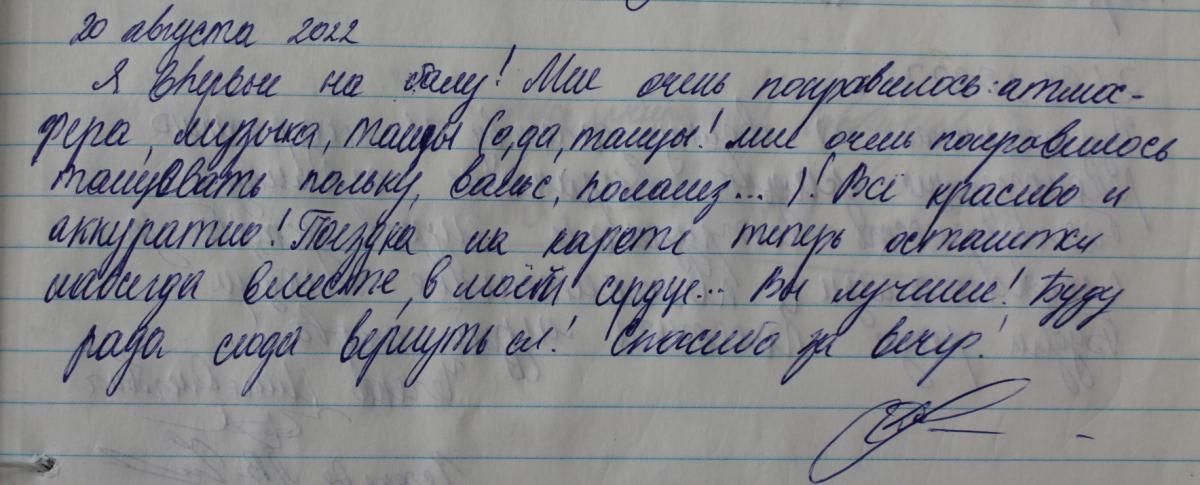 20 августа 2022
Я впервые на балу! Мне очень понравилось: атмос-
фера, музыка, танцы (о, да, танцы! мне очень понравилось
танцевать польку, вальс, полонез... )! Всё красиво и
аккуратно! Поездка на карете теперь останется
навсегда вместе, в моём сердце... Вы лучшие! Буду
рада сюда вернуться! Спасибо за вечер!